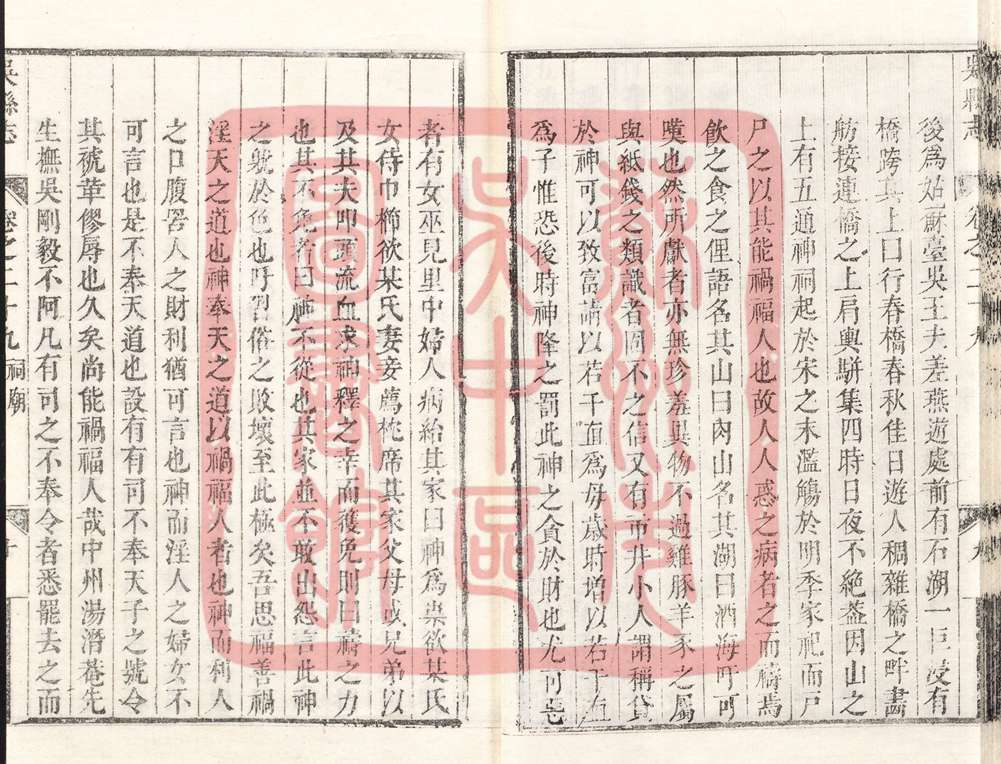 吳縣志
卷之二十九
九
後爲姑蘇臺吳王夫差燕遊處前有石湖一巨浸有
橋跨其上曰行春橋春秋佳日遊人稠雜橋之畔畵
舫接連橋之上肩輿駢集四時日夜不絶葢因山之
上有五通神祠起於宋之末濫觴於明季家祀而戸
尸之以其能禍福人也故人人惑之病者之而禱焉
飲之食之俚語名其山曰肉山名其湖曰酒海吁可
嘆也然所獻者亦無珍羞異物不過雞豚羊豕之屬
與紙錢之類識者固不之信又有市井小人謂稱貸
於神可以致富請以若干直爲母歲時增以若干直
爲子惟恐後時神降之罰此神之貪於財也尤可
者有女巫見里中婦人病紿其家曰神爲祟欲某氏
女侍巾櫛欲某氏妻妾薦枕席其家父母或兄弟以
及其夫叩頭流血求神釋之幸而獲免則曰禱之力
也其不免者曰神不從也其家並不敢出怨言此神
之貪於色也吁習俗之敗壞至此極矣吾思福善禍
淫天之道也神奉天之道以禍福人者也神而利人
之口腹罟人之財利猶可言也神而淫人之婦女不
可言也是不奉天道也設有有司不奉天子之號令
其褫革僇辱也久矣尚能禍福人哉中州湯潛菴先
生撫吳剛毅不阿凡有司之不奉令者悉罷去之而
吳縣志
卷之二十九
祠廟
十
蘇州市
吳中區
圖書館